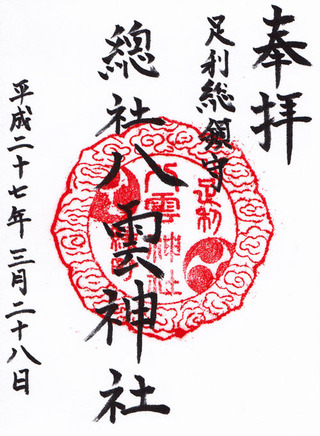 奉拝
足利総鎮守
總社八雲神社
平成二十七年三月二十八日
足利
八雲神社